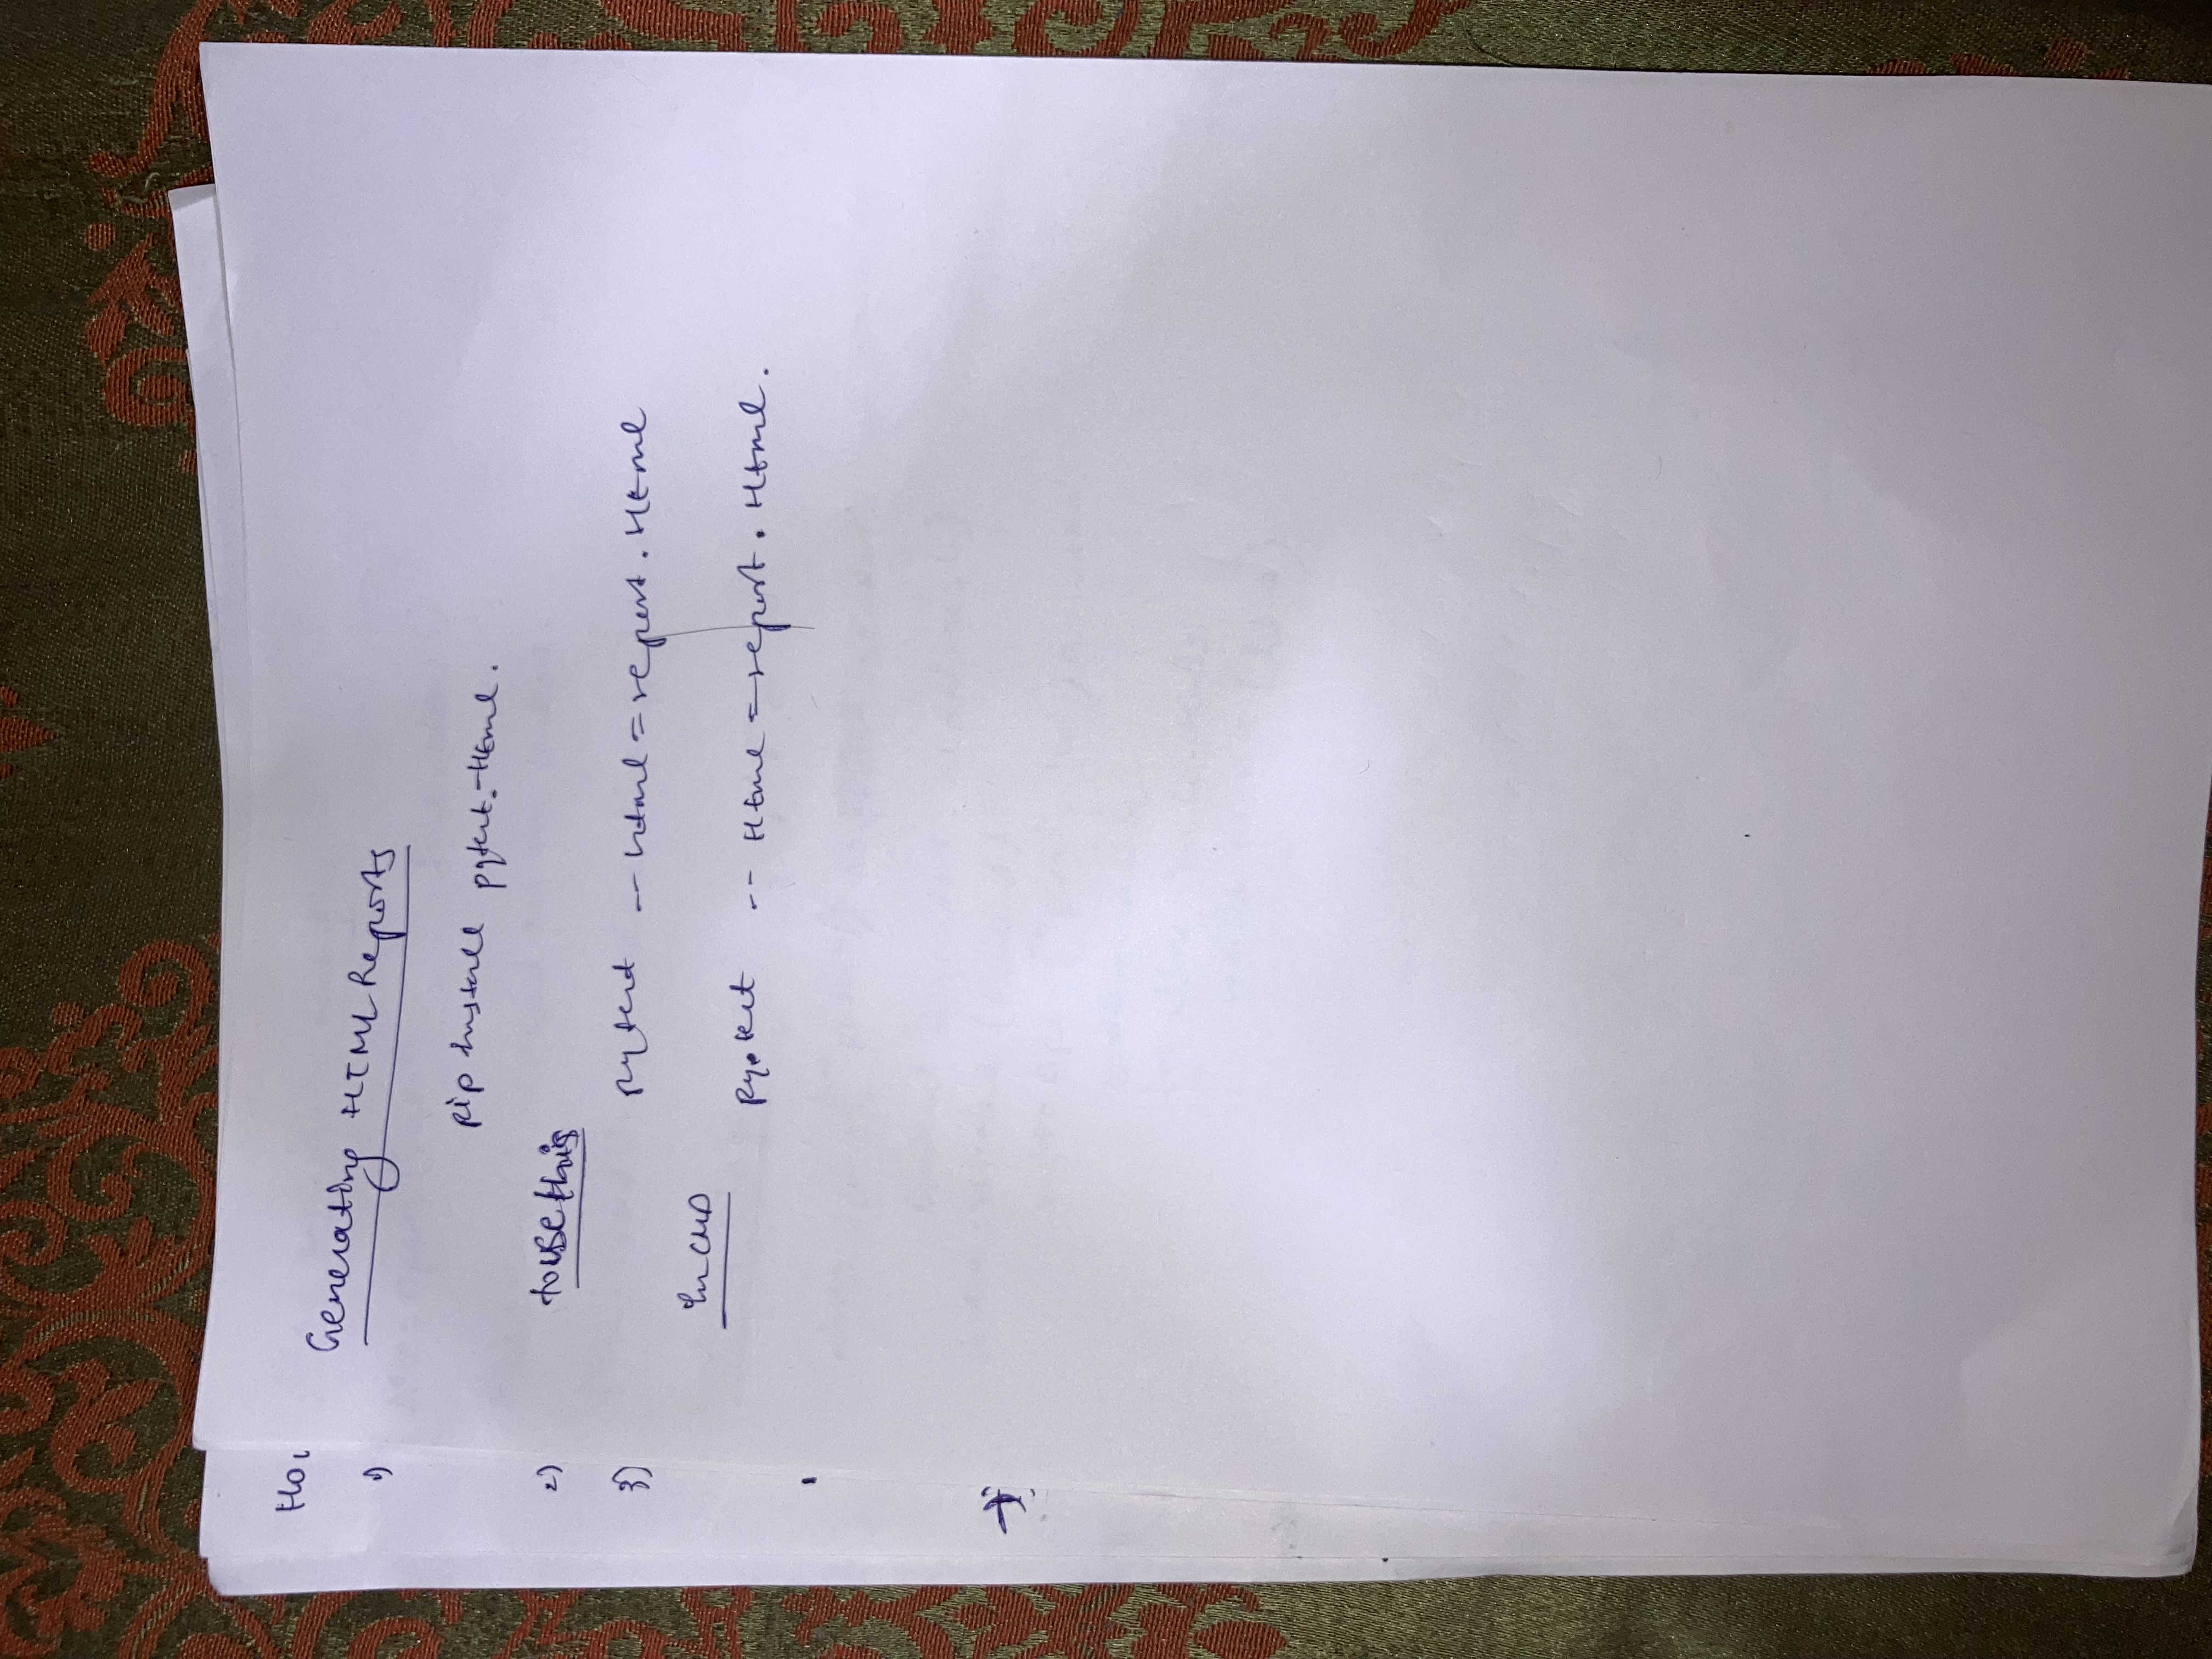 Ho
Generating HTML Reports
1)
pip install pytest-Html.
2)
to use this
3)
pytest -- html = report. Html
In CMD
py.test -- Html = report. Html.